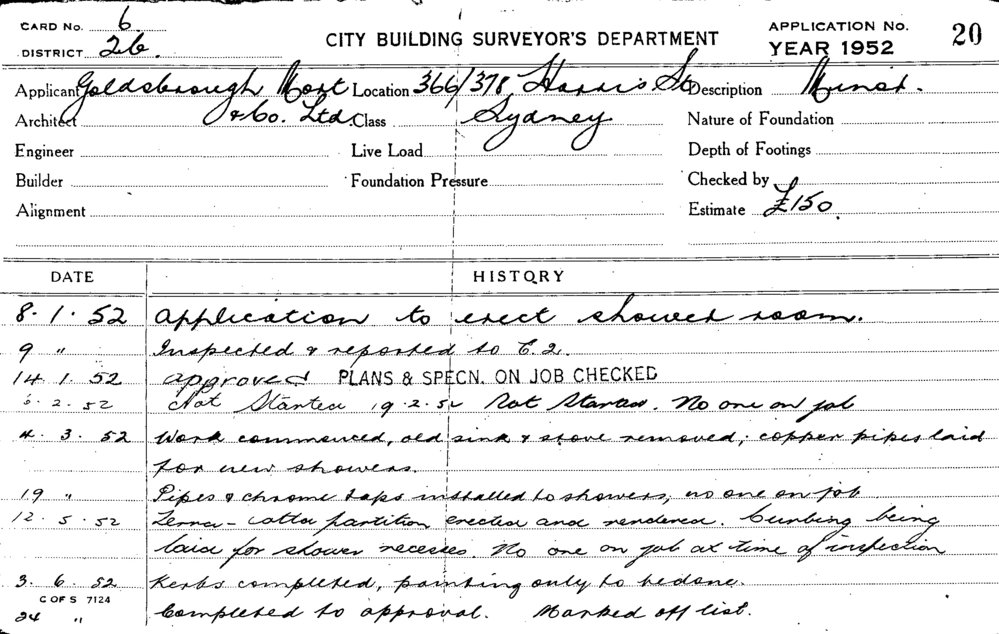 CARD No. 6
DISTRICT 26.
CITY BUILDING SURVEYOR'S DEPARTMENT
APPLICATION No. 20
YEAR 1952
Applicant Goldsbrough Mort Location 366/378 Harris St Description Minor.
Architect & Co. Ltd. Class Sydney Nature of Foundation
Engineer Live Load Depth of Footings
Builder Foundation Pressure Checked by
Alignment Estimate £150.
DATE HISTORY
8. 1. 52 Application to erect shower room.
9 " Inspected & reported to C.2.
14. 1. 52 approved PLANS & SPECN. ON JOB CHECKED
6. 2. 52 Not Started 19.2.52 Not Started. No one on job
4. 3. 52 Work commenced, old sink & stove removed; copper pipes laid
for new showers.
19 " Pipes & chrome taps installed to showers, no one on job
12. 5. 52 Terra-cotta partition erected and rendered. Curbing being
laid for shower recesses. No one on job at time of inspection
3. 6. 52 Kerbs completed, painting only to be done.
C OF S 7124
24 " Completed to approval. Marked off list.